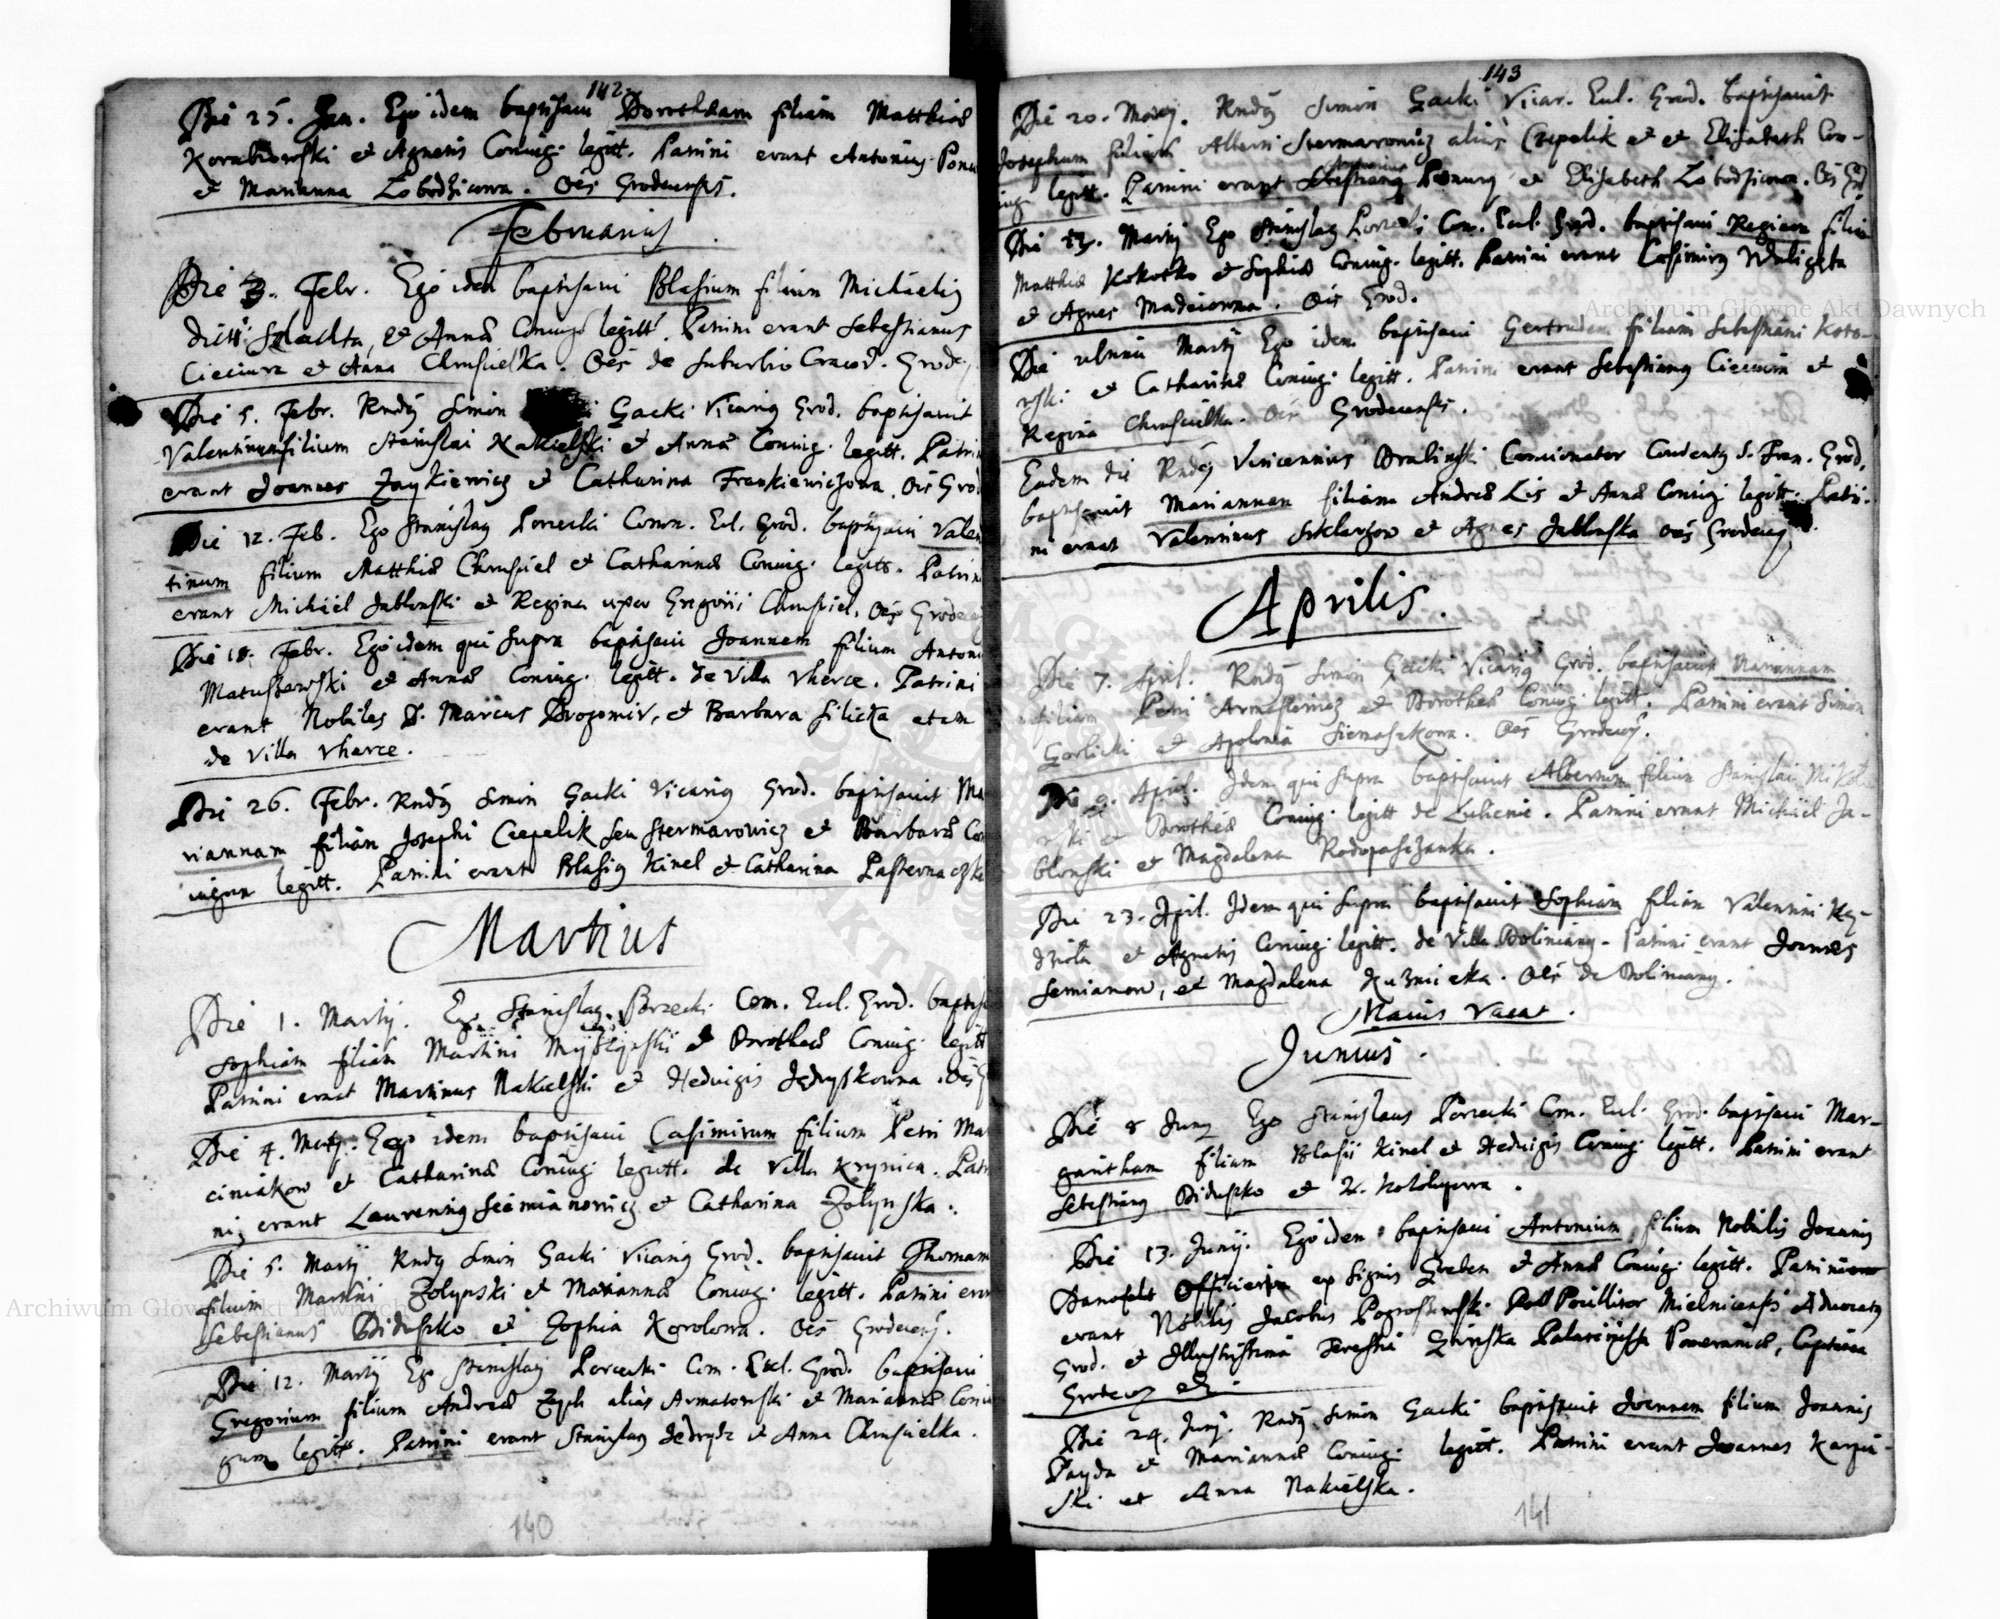 142
Die 25. Jan. Ego idem baptisavi Dorotheam filiam Matthiae
Korabiowski et Agnetis Coniug. legitt. Patrini erant Antonius
et Marianna Lobodzicowa. Oēs Grodecenses.
Februarius
Die 3. Febr. Ego idem baptisavi Blasium filium Michaelis
dicti Szlachta, et Annae Coniug. legitt. Patrini erant Sebestianus
Cieciura et Anna Chmsielka. Oēs de Suburbio Cracov. Grodec.
Die 5. Febr. Rndus Simon Gacki Vicarius Grod. baptisavit
Valentinum filium Stanislai Nakielski et Annae Coniug. legitt. Patrini
erant Joannes Zaykiewicz et Catharina Frankiewiczowa. Oēs Grod
Die 12. Feb. Ego Stanislaus Porzecki Comm. Ecl. Grod. baptisavi Valen
tinum filium Matthiae Chmsiel et Catharinae Coniug. legitt. Patrini
erant Michael Jablonski et Regina uxor Gregorii Chmsiel. Oēs Grodec
Die 18. Febr. Ego idem qui supra baptisavi Joannem filium Antoni
Matuszewski et Annae Coniug. legitt. de Villa Vherce. Patrini
erant Nobiles D. Marcus Drogomir, et Barbara Silicka etam
de Villa Vharce.
Die 26. Febr. Rndus Simon Gacki Vicarius Grod. baptisavit Ma
riannam filiam Josephi Czepelik seu Stermarowicz et Barbarae Con
iugum legitt. Patrini erant Blasius Kinel et Catharina Pasternaczka
Martius
Die 1. Martij. Ego Stanislaus Porzecki Com. Eccl. Grod. baptis
Sophiam filiam Martini et Dorotheae Coniug. legitt
Patrini erant Martinus Nakielski et Hedvigis Jędryskowna. Oēs G
Die 4. Martij. Ego idem baptisavi Casimirum filium Petri Ma
ciniakow et Catharinae Coniug. legitt. de Villa Krynica. Patri
ni erant Laurentius Siemianowicz et Catharina Zolynska.
Die 5. Martij Rndus Simon Gacki Vicarius Grod. baptisavit Thomam
filium Martini Zolynski et Mariannae Coniug. legitt. Patrini erant
Sebestianus Diduszko et Zophia Korolowa. Oēs Grodecens.
Die 12. Martij Ego Stanislaus Porzecki Com. Eccl. Grod. baptisavi
Gregorium filium Andreae Zych alias Armatowski et Mariannae Coniu
gum legitt. Patrini erant Stanislaus Jedrych et Anna Chmsielka.
140
143
Die 20. Martij. Rndus Simon Gacki Vicar. Eccl. Grod. baptisavit
Josephum filium Alberti Stermarrowicz alias Czepelik et et Elizabeth Con-
iugi legitt. Patrini erant Sebestianus et Elisabeth Lobodzicowa. Oēs Grod
Die 23. Martij Ego Stanislaus Porzecki Com. Eccl. Grod. baptisavi Reginam filia
Matthiae Kokosko et Sophiae Coniug. legitt. Patrini erant Casimirus
et Agnes Madeiowna. Oēs Grod.
Die ultima Martij Ego idem baptisavi Gertrudem filiam Sebestiani Koto-
wski et Catharinae Coniug. legitt. Patrini erant Sebestianus Cieciura et
Regina Chmsielka. Oēs Grodecenses.
Eadem die Rndus Vincentius Dralinski Concionator Conventus S. Fran. Grod.
baptisavit Mariannam filiam Andreae Lis et Annae Coniug. legitt. Patri-
ni erant Valentinus Szklarzow et Agnes Jablonska Oēs Grodecens.
Aprilis.
Die 7. April. Rndus Simon Gacki Vicarius Grod. baptisavit Mariannam
filiam Petri et Dorotheae Coniug. legitt. Patrini erant Simon
Gorlicki et Apolonia Siemaszkowa. Oēs Grodecens.
Die 9. April. Idem qui supra baptisavit Albertum filium Stanislai
et Dorotheae Coniug. legitt de Lubenie. Patrini erant Michael Ja-
blonski et Magdalena Rodopaszanka.
Die 23. April. Idem qui supra baptisavit Sophiam filiam Valentini
et Agnetis Coniug. legitt. de Villa Doliniany. Patrini erant Joannes
Semianow, et Magdalena Kuznicka. Oēs de Doliniany.
Maius Vacat.
Junius.
Die 8 Junij Ego Stanislaus Porzecki Com. Eccl. Grod. baptisavi Mar-
garitham filiam Blasij Kinel et Hedvigis Coniug. legitt. Patrini erant
Sebestianus Diduszko et N. Holohuzowa.
Die 13. Junij. Ego idem baptisavi Antonium filium Nobilis Joannis
Officiersa ex Signis Greben et Annae Coniug. legitt. Patrini
erant Nobilis Jacobus Pogroszewski Mielnicensis Advocatus
Grod. et Illustrissima Teressia Zhirska Palatinissa Pomeraniae, Capitanea
Grodecen etc.
Die 24. Junij. Rndus Simon Gacki baptisavit Joannem filium Joannis
Payda et Mariannae Coniug. legitt. Patrini erant Joannes Karpi-
ski et Anna Nakielska.
141
Archiwum Główne Akt Dawnych
Archiwum Główne Akt Dawnych